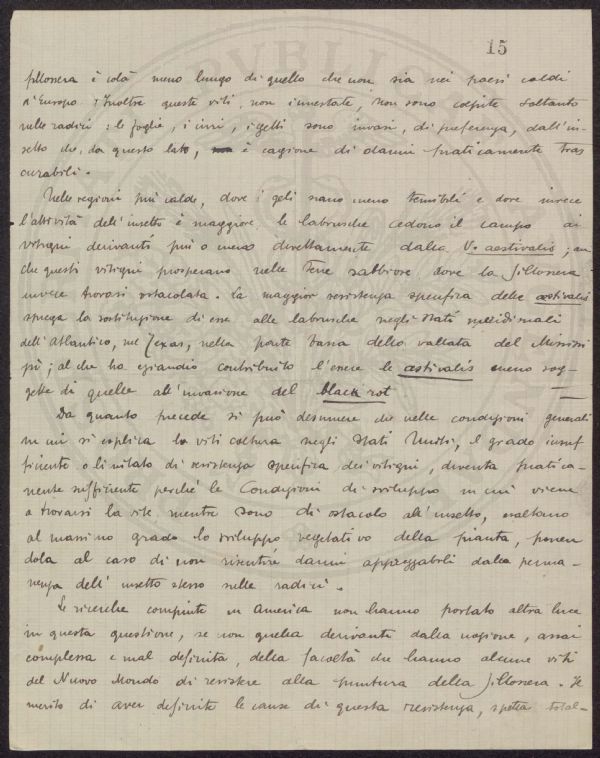 15
fillossera è colà meno lungo di quello che non sia nei paesi caldi
d'Europa. Inoltre queste viti, non innestate, non sono colpite soltanto
nelle radici: le foglie, i cirri, i getti sono invasi, di preferenza, dall'in-
setto che, da questo lato, è cagione di danni praticamente tras
curabili.
Nelle regioni più calde, dove i geli sono meno temibili e dove invece
l'attività dell'insetto è maggiore, le labrusche cedono il campo ai
vitigni derivanti più o meno direttamente dalla V. aestivalis; an
che questi vitigni prosperano nelle terre sabbiose, dove la fillossera
invece trovasi ostacolata. La maggior resistenza specifica delle aestivalis
spiega la sostituzione di esse alle labrusche negli Stati meridionali
dell'Atlantico, nel Texas, nella parte bassa della vallata del Mississi
pì; al che ha eziandio contribuito l'essere le aestivalis meno sog-
gette di quelle all'invasione del black rot
Da quanto precede si può desumere che nelle condizioni generali
in cui si esplica la viticoltura negli Stati Uniti, il grado insuf
ficiente o limitato di resistenza specifica dei vitigni, diventa pratica-
mente sufficiente perchè le condizioni di sviluppo in cui viene
a trovarsi la vite mentre sono di ostacolo all'insetto, esaltano
al massimo grado lo sviluppo vegetativo della pianta, ponen
dola al caso di non risentire danni apprezzabili dalla perma-
nenza dell'insetto stesso sulle radici.
Le ricerche compiute in America non hanno portato altra luce
in questa questione, se non quella derivante dalla nozione, assai
complessa e mal definita, della facoltà che hanno alcune viti
del Nuovo Mondo di resistere alla puntura della fillossera. Il
merito di aver definite le cause di questa resistenza, spetta total-